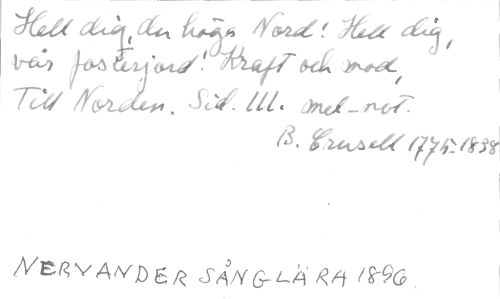 Hell dig, du höga Nord! Hell dig,
vår fosterjord! Kraft och mod,
Till Norden. Sid. 111. mel-not.
B. Crusell 1775-1838
NERVANDER SÅNGLÄRA 1896